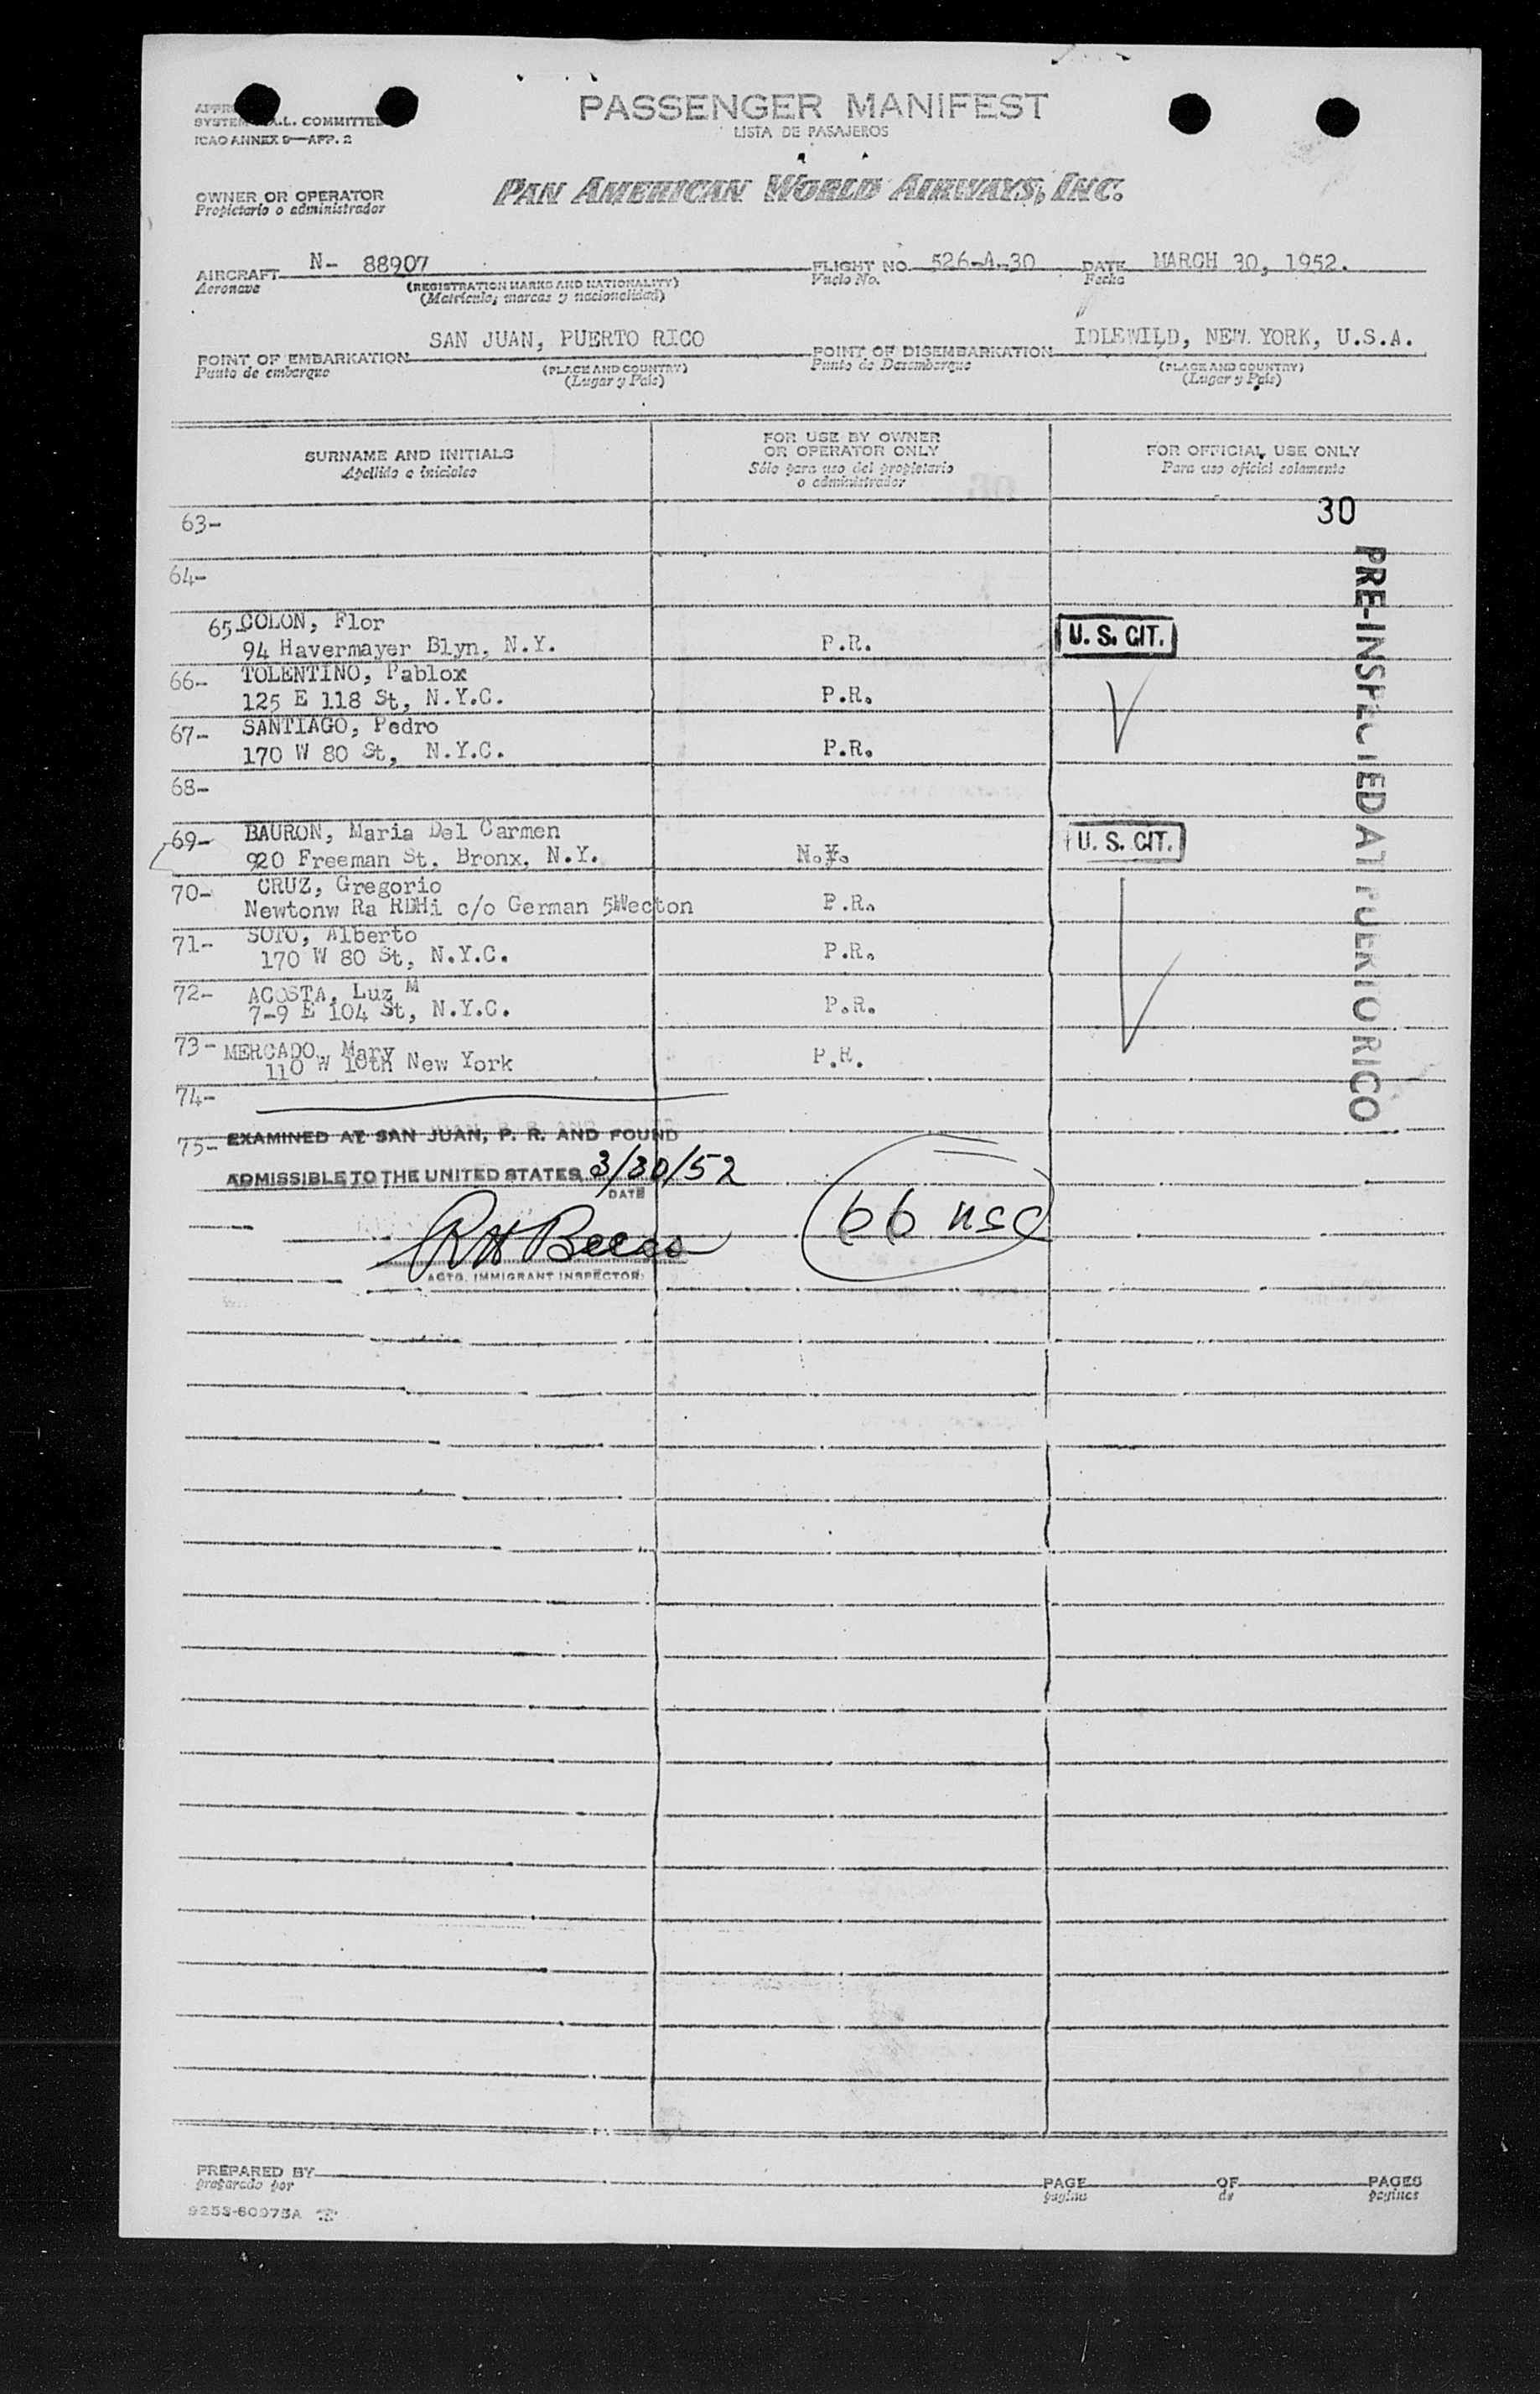 SYSTEM A.L. COMMITTEE
ICAO ANNEX 9—APP. 2
PASSENGER MANIFEST
LISTA DE PASAJEROS
OWNER OR OPERATOR
Propietario o administrador
PAN AMERICAN WORLD AIRWAYS, INC.
AIRCRAFT N- 88907
Aeronave
(REGISTRATION MARKS AND NATIONALITY)
(Matrícula, marcas y nacionalidad)
FLIGHT NO. 526-A-30
Vuelo No.
DATE MARCH 30, 1952.
Fecha
POINT OF EMBARKATION SAN JUAN, PUERTO RICO
Punto de embarque
(PLACE AND COUNTRY)
(Lugar y País)
POINT OF DISEMBARKATION IDLEWILD, NEW YORK, U.S.A.
Punto de Desembarque
(PLACE AND COUNTRY)
(Lugar y País)
SURNAME AND INITIALS
Apellido e iniciales
FOR USE BY OWNER
OR OPERATOR ONLY
Sólo para uso del propietario
o administrador
FOR OFFICIAL USE ONLY
Para uso oficial solamente
30
PRE-INSPECTED AT PUERTO RICO
63-
64-
65- COLON, Flor
94 Havermayer Blyn, N.Y. P.R. U. S. CIT.
66- TOLENTINO, Pablox
125 E 118 St, N.Y.C. P.R.
67- SANTIAGO, Pedro
170 W 80 St, N.Y.C. P.R.
68-
69- BAURON, Maria Del Carmen
920 Freeman St. Bronx, N.Y. N.Y. U. S. CIT.
70- CRUZ, Gregorio
Newtonw Ra c/o German P.R.
71- SOTO, Alberto
170 W 80 St, N.Y.C. P.R.
72- ACOSTA, Luz M
7-9 E 104 St, N.Y.C. P.R.
73- MERCADO, Mary
110 W 10th New York P.R.
74-
75- EXAMINED AT SAN JUAN, P. R. AND FOUND
ADMISSIBLE TO THE UNITED STATES 3/30/52
DATE
66 usc
ACTG. IMMIGRANT INSPECTOR
PREPARED BY
preparado por
PAGE OF PAGES
pagina de paginas
9253-60975A